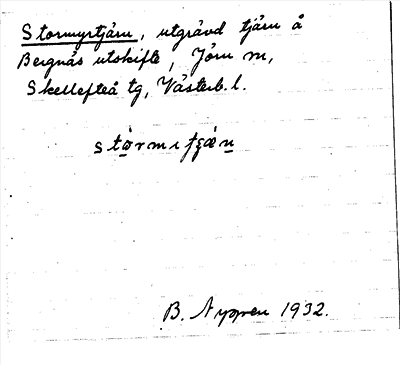 Stormyrtjärn, utgrävd tjärn å
Bergnäs utskifte, Jörn sn,
Skellefteå tg, Västerb. l.
B. Nygren 1932.